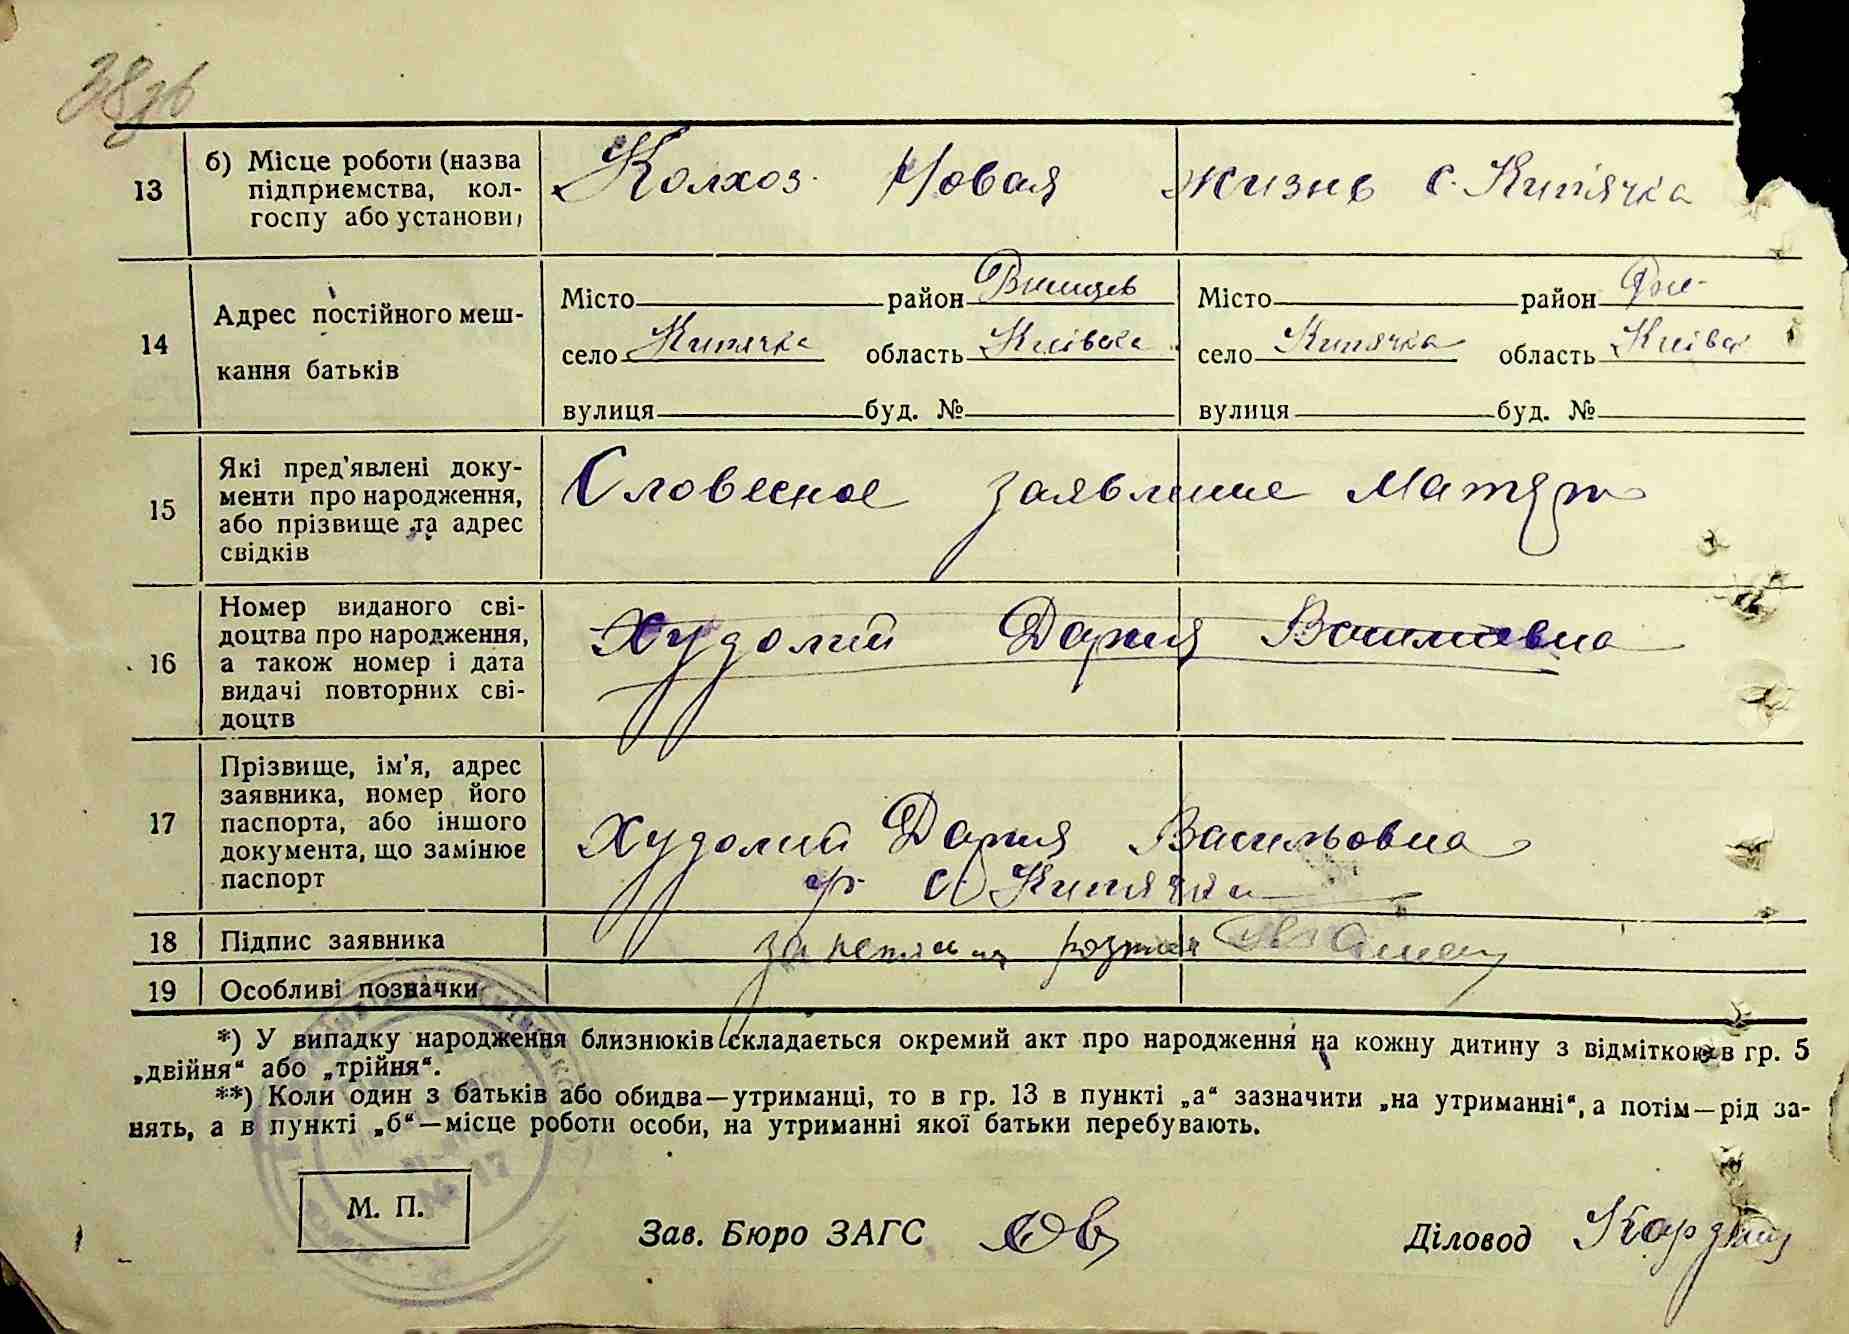 38зв
13 б) Місце роботи (назва підприємства, кол-госпу або установи) Колхоз Новая жизнь с. Кипячка
14 Адрес постійного меш-кання батьків
Місто район Місто район
село Кипячка область Київска село Кипячка область Київск
вулиця буд. № вулиця буд. №
15 Які пред'явлені доку-менти про народження, або прізвище та адрес свідків Словесное заявление Матери
16 Номер виданого сві-доцтва про народження, а також номер і дата видачі повторних сві-доцтв Худолий Дария Васильовна
17 Прізвище, ім'я, адрес заявника, номер його паспорта, або іншого документа, що замінює паспорт Худолий Дария Васильовна
гр. с. Кипячка
18 Підпис заявника за
19 Особливі позначки
*) У випадку народження близнюків складається окремий акт про народження на кожну дитину з відміткою в гр. 5
„двійня“ або „трійня“.
**) Коли один з батьків або обидва—утриманці, то в гр. 13 в пункті „а“ зазначити „на утриманні“, а потім—рід за-
нять, а в пункті „б“—місце роботи особи, на утриманні якої батьки перебувають.
№ 17
М. П.
Зав. Бюро ЗАГС Діловод